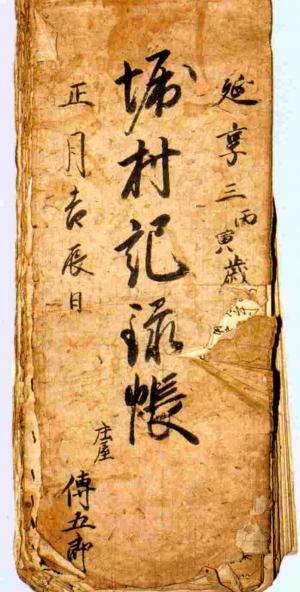 延享三丙寅歳
堀村記録帳
正月吉辰日
庄屋
傳五郎